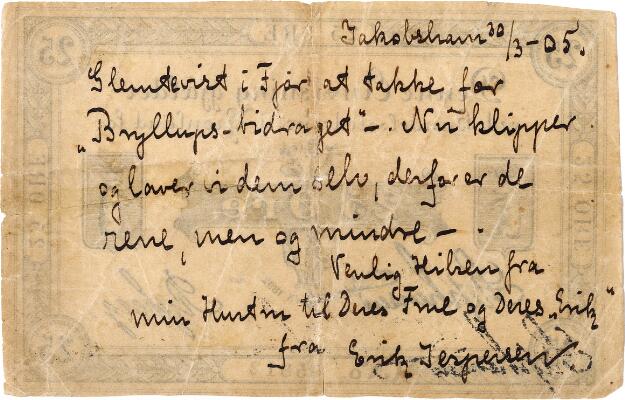 Jakobshavn 30/3-05.
Glemte vist i Fjor at takke for
„Bryllups-bidraget“-. Nu klipper
og laver vi dem selv, derfor er de
rene, men og mindre - .
Venlig Hilsen fra
min Hustru til Deres Frue og Deres „Erik“
fra Erik Jespersen
25
25 ØRE
25